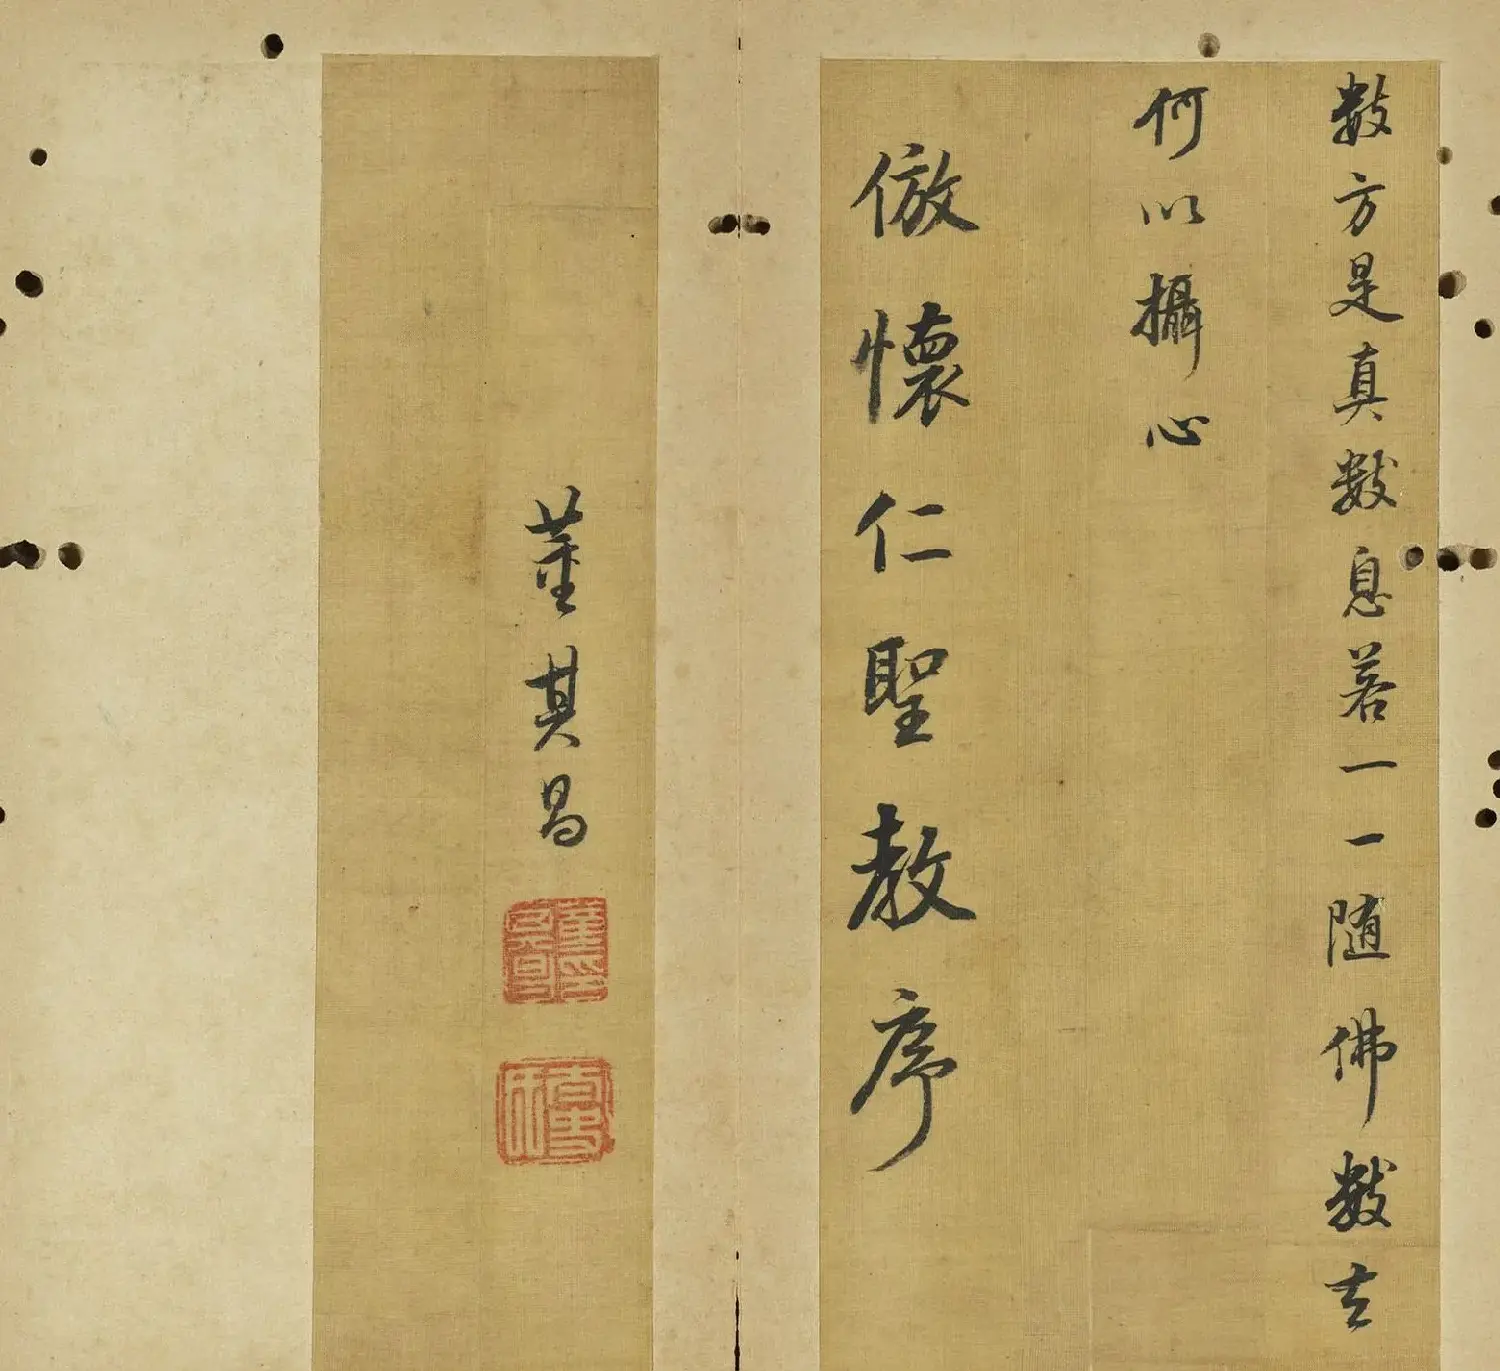 数方是真数息若一一随佛数去
何以攝心
倣懷仁聖教序
董其昌